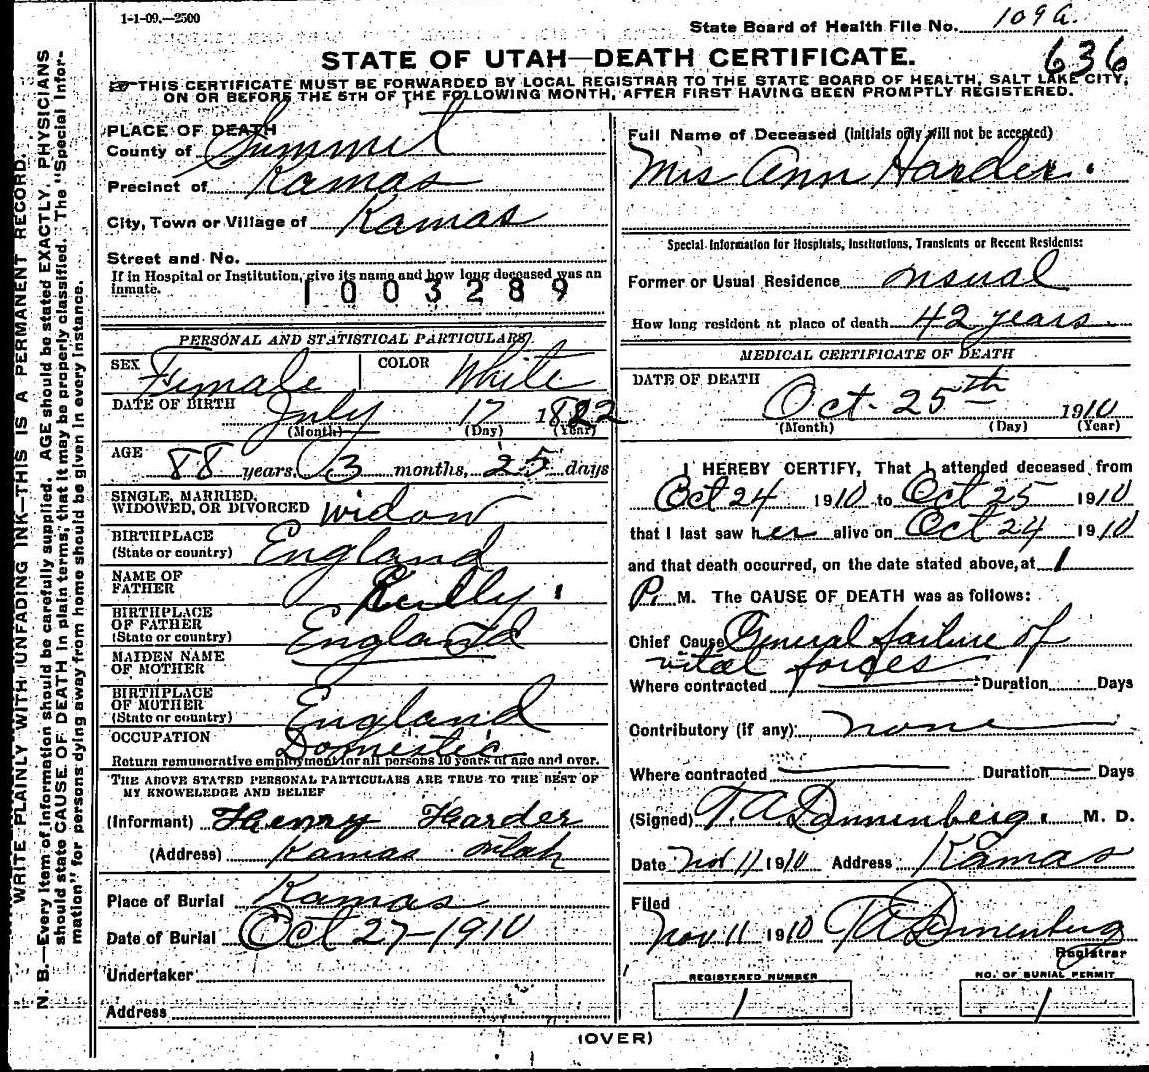 1-1-09.—2500
State Board of Health File No. 109a.
636
STATE OF UTAH—DEATH CERTIFICATE.
THIS CERTIFICATE MUST BE FORWARDED BY LOCAL REGISTRAR TO THE STATE BOARD OF HEALTH, SALT LAKE CITY,
ON OR BEFORE THE 5TH OF THE FOLLOWING MONTH, AFTER FIRST HAVING BEEN PROMPTLY REGISTERED.
WRITE PLAINLY WITH UNFADING INK—THIS IS A PERMANENT RECORD.
N. B.—Every item of information should be carefully supplied. AGE should be stated EXACTLY. PHYSICIANS
should state CAUSE OF DEATH in plain terms, that it may be properly classified. The "Special Infor-
mation" for persons dying away from home should be given in every instance.
PLACE OF DEATH
County of Summit
Precinct of Kamas
City, Town or Village of Kamas
Street and No.
If in Hospital or Institution, give its name and how long deceased was an
inmate.
1003289
PERSONAL AND STATISTICAL PARTICULARS
SEX Female COLOR White
DATE OF BIRTH July 17 1822
(Month) (Day) (Year)
AGE 88 years. 3 months, 25 days
SINGLE, MARRIED,
WIDOWED, OR DIVORCED widow
BIRTHPLACE
(State or country) England
NAME OF
FATHER Reilly.
BIRTHPLACE
OF FATHER
(State or country) England
MAIDEN NAME
OF MOTHER
BIRTHPLACE
OF MOTHER
(State or country) England
OCCUPATION Domestic
Return remunerative employment for all persons 10 years of age and over.
THE ABOVE STATED PERSONAL PARTICULARS ARE TRUE TO THE BEST OF
MY KNOWLEDGE AND BELIEF
(Informant) Henry Harder
(Address) Kamas Utah
Place of Burial Kamas
Date of Burial Oct 27-1910
Undertaker
Address
Full Name of Deceased (Initials only will not be accepted)
Mrs Ann Harder.
Special Information for Hospitals, Institutions, Transients or Recent Residents:
Former or Usual Residence usual
How long resident at place of death 42 years
MEDICAL CERTIFICATE OF DEATH
DATE OF DEATH
Oct. 25th 1910
(Month) (Day) (Year)
I HEREBY CERTIFY, That I attended deceased from
Oct 24 1910 to Oct 25 1910
that I last saw her alive on Oct 24 1910
and that death occurred, on the date stated above, at 1
P. M. The CAUSE OF DEATH was as follows:
Chief Cause General failure of
vital forces
Where contracted Duration Days
Contributory (if any): none
Where contracted Duration Days
(Signed) T. A. Dannenberg. M. D.
Date Nov 11 1910 Address Kamas
Filed
Nov 11 1910 T A Dannenberg
Registrar
REGISTERED NUMBER
1
NO. OF BURIAL PERMIT
1
(OVER)